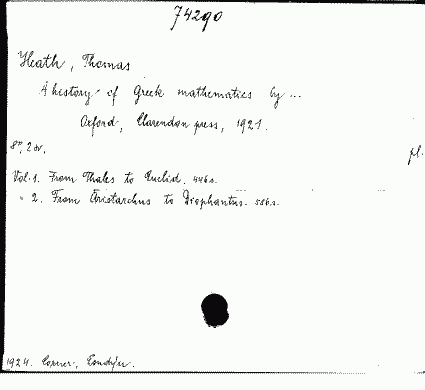 74290
Heath, Thomas
A history of Greek mathematics by ...
Oxford, Clarendon press, 1921.
8°, 2 v. pl.
Vol. 1. From Thales to Euclid. 446 s.
" 2. From Aristarchus to Diophantus. 586 s.
1924. Corner, London.